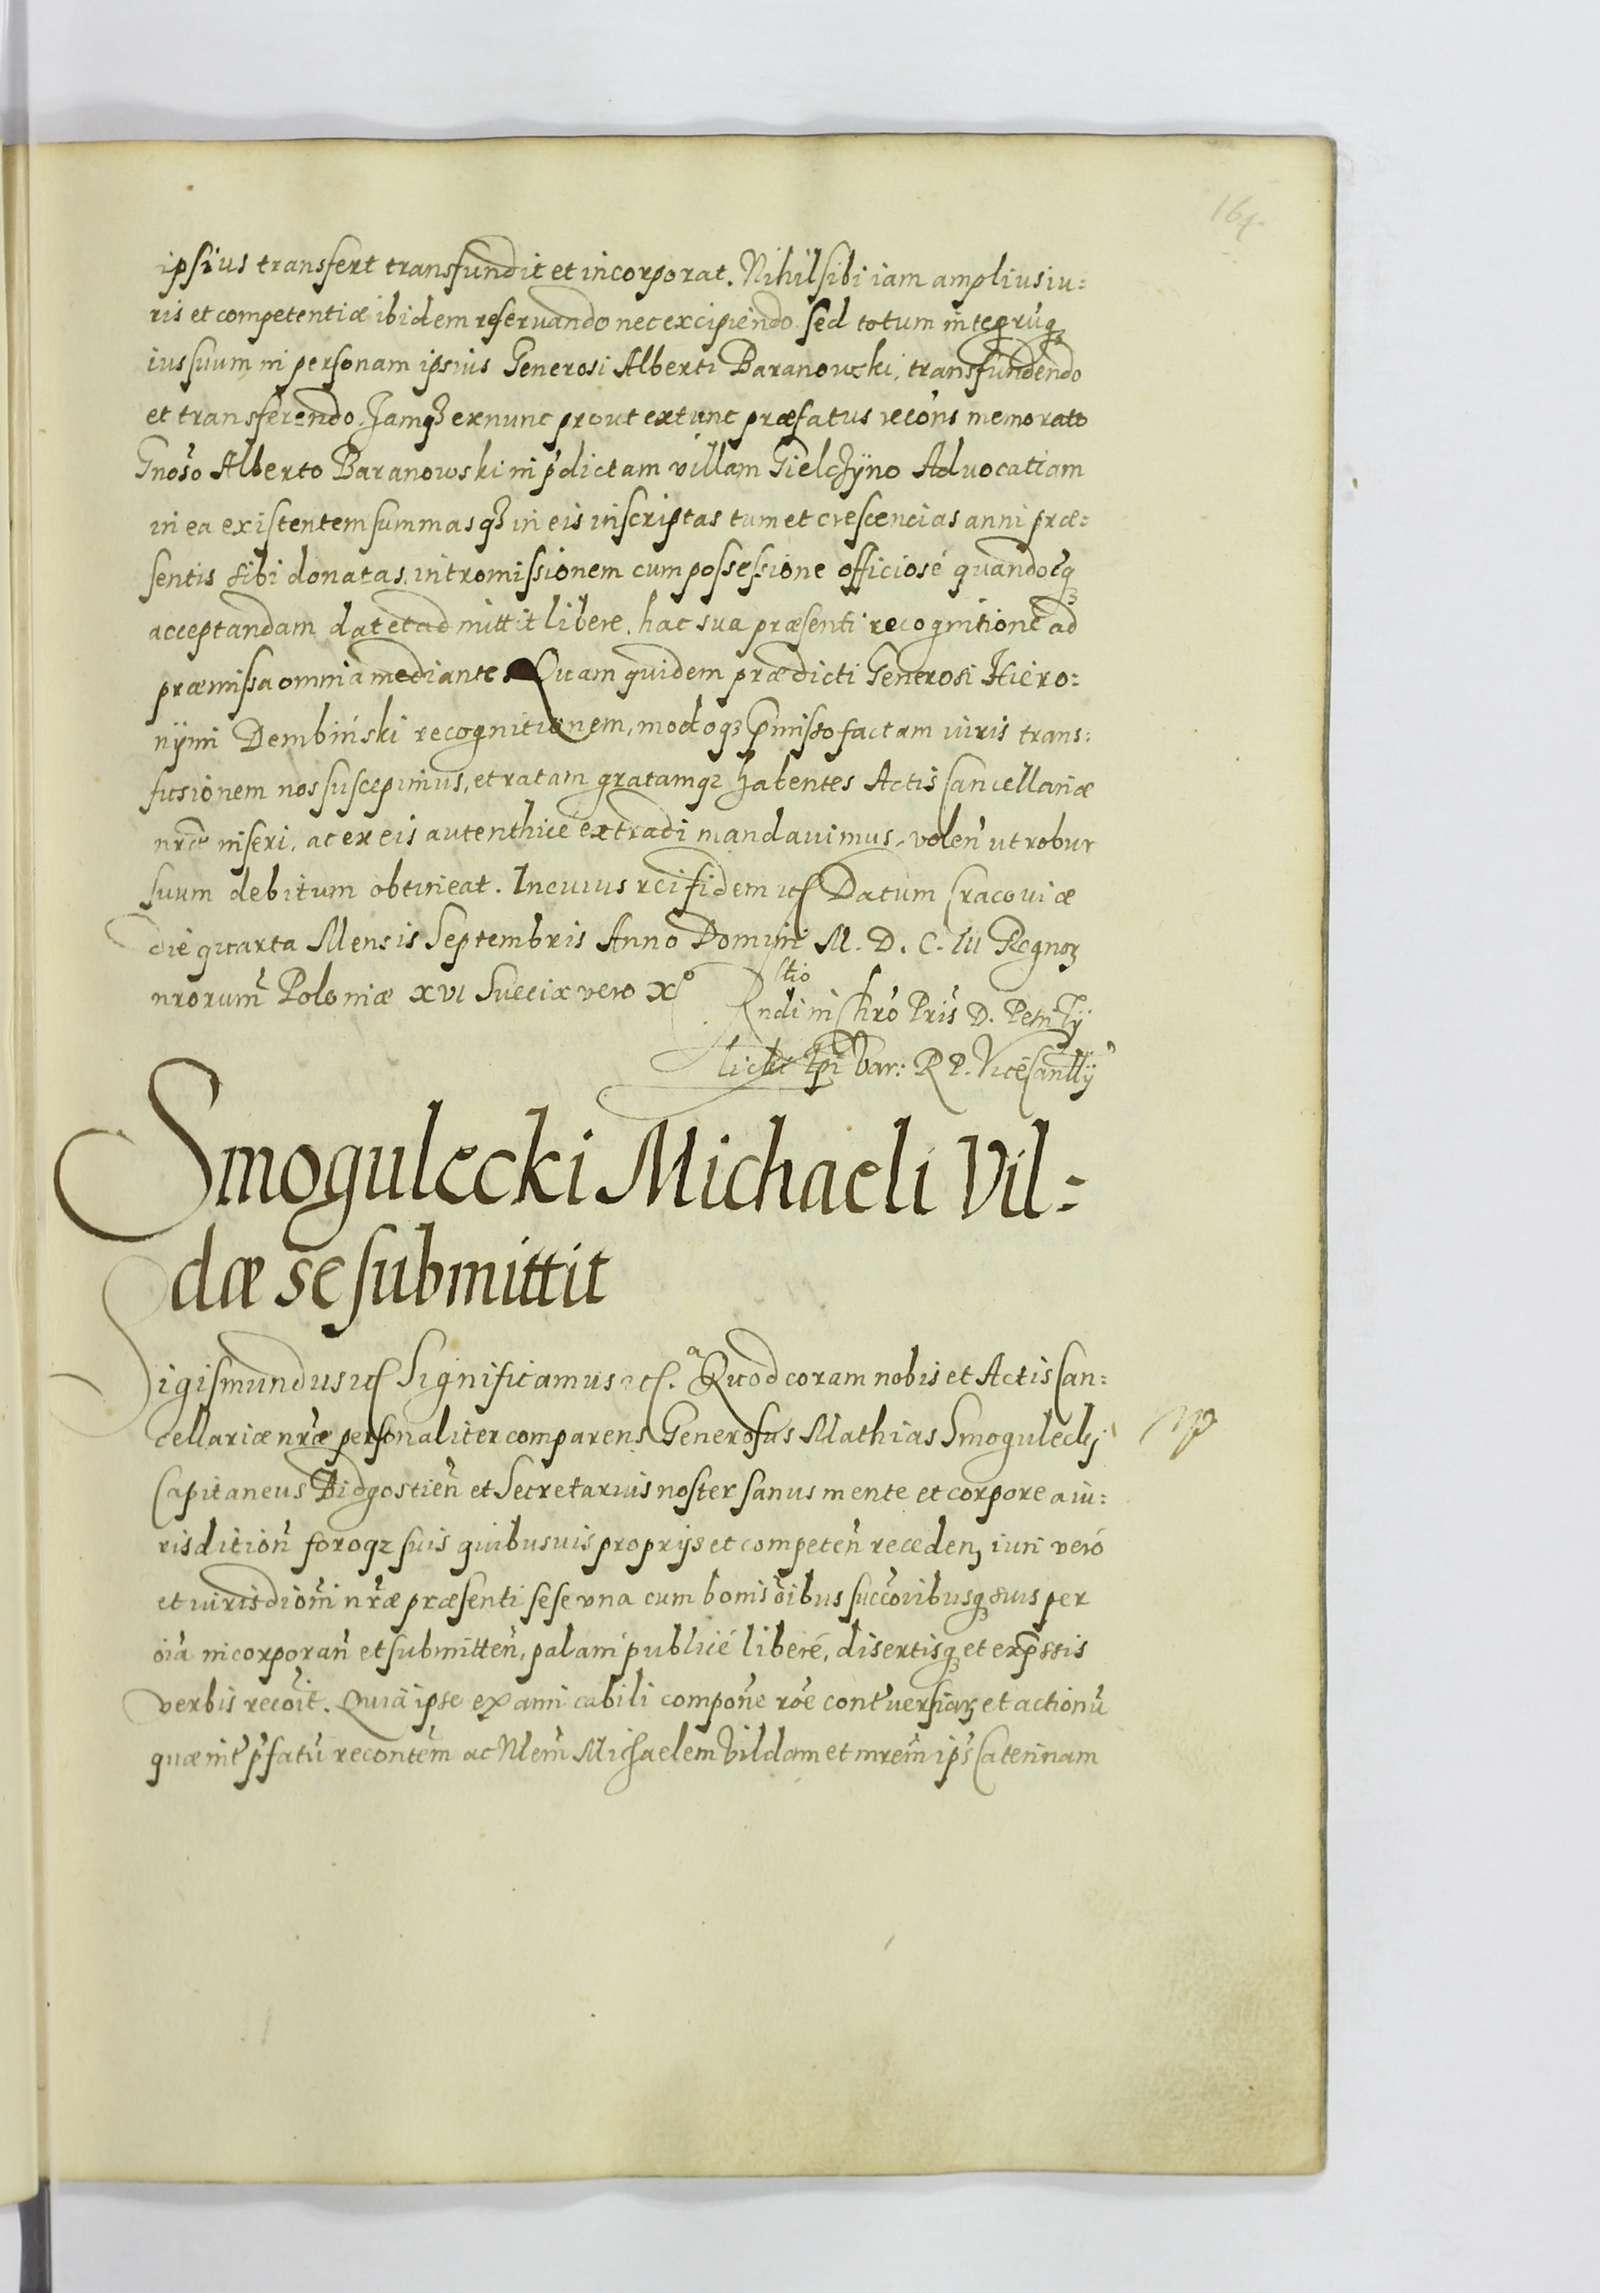 164
ipsius transfert transfundit et incorporat. Nihil sibi iam amplius iu=
ris et competentiæ ibidem reseruando nec excipiendo sed totum integrūq3
ius suum in personam ipsius Generosi Alberti Baranowski, transfundendo
et transferendo. Jamq3 ex nunc prout ex tunc præfatus recōns memorato
Gnōso Alberto Baranowski in p̄dictam villam Gielczÿno Aduocatiam
in ea existentem summasq3 in eis inscriptas tum et crescencias anni præ=
sentis sibi donatas, intromissionem cum possessione officiosé quandocq3
acceptandam dat et admittit libere, hac sua præsenti recognitione ad
præmissa omnia mediante. Quam quidem prædicti Generosi Hiero=
nÿmi Dembiński recognitionem, modoq3 p̄misso factam iuris trans=
fusionem nos suscepimus, et ratam gratamq3 habentes Actis Cancellariæ
nrāe inseri, ac ex eis autenthicé extradi mandauimus, volen̄ ut robur
suum debitum obtineat. In cuius rei fidem etc Datum Cracouiæ
die quarta Mensis Septembris Anno Domini M. D. C. III Regnor3
nrorum̄ Poloniæ XVI Sueciæ vero Xº
R̄ndi in Chrō Pris̄ D. Petri Tÿ
licki Ep̄i Var: R P. Vicecanc̄llÿ
Smogulecki Michaeli Vil=
dæ se submittit
Sigismundus etc Significamus etc. Quod coram nobis et Actis Can=
cellariæ nr̄æ personaliter comparens Generosus Mathias Smogulecki
Capitaneus Bidgostien̄ et Secretarius noster sanus mente et corpore a iu=
risdition̄ foroq3 suis quibusuis proprijs et competen̄ receden3 iuri veró
et iurisdiōni nr̄æ præsenti sese vna cum bonis ōibus succ̄oribusq3 suis per
ōia incorporan̄ et submitten̄, palam publicé liberé, disertisq3 et exp̄ssis
verbis recōit. Quia ipse ex amicabili compōne rōe cont̄uersiar3 et actionū
quæ int̄ p̄fatū recōntem ac Nlem̄ Michaelem Vildam et mrem̄ ips̄ Caterinam